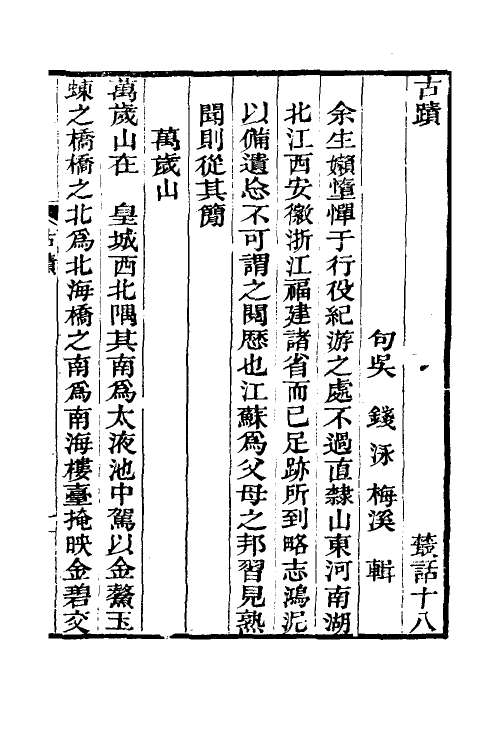 古蹟　叢話十八
句吳　錢泳　梅溪　輯
余生嬾惰憚于行役紀游之處不過直隸山東河南湖
北江西安徽浙江福建諸省而已足跡所到略志鴻泥
以備遺忘不可謂之閱歷也江蘇爲父母之邦習見熟
聞則從其簡
萬歲山
萬歲山在　皇城西北隅其南爲太液池中駕以金鰲玉
蝀之橋橋之北爲北海橋之南爲南海樓臺掩映金碧交
古蹟
一